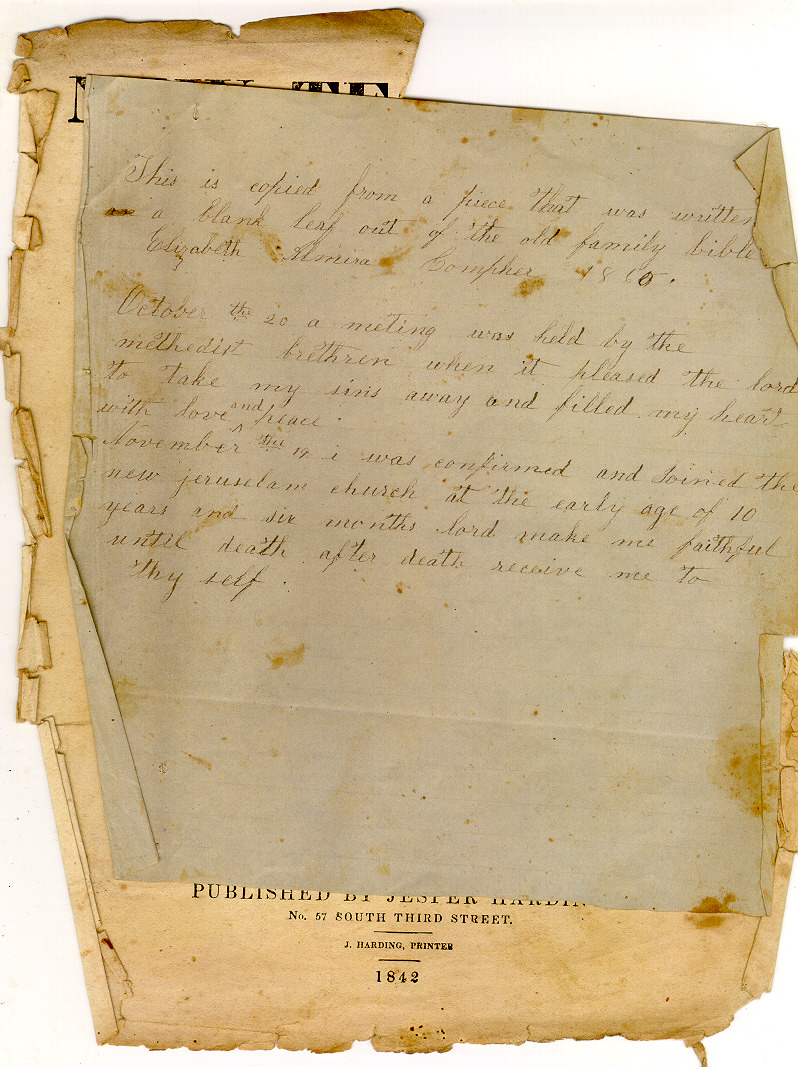 This is copied from a piece that was written
a blank leaf out of the old family bible
Elizabeth Almira Compher 1860.
October the 20 a meting was held by the
methedist brethren when it pleased the lord
to take my sins away and filled my heart
with love and peace.
November the 19 i was confirmed and Joined the
new jeruselam church at the early age of 10
years and six months lord make me faithful
until death after death receive me to
thy self.
PUBLISHED BY JESPER HARDIN
No. 57 SOUTH THIRD STREET.
J. HARDING, PRINTER
1842